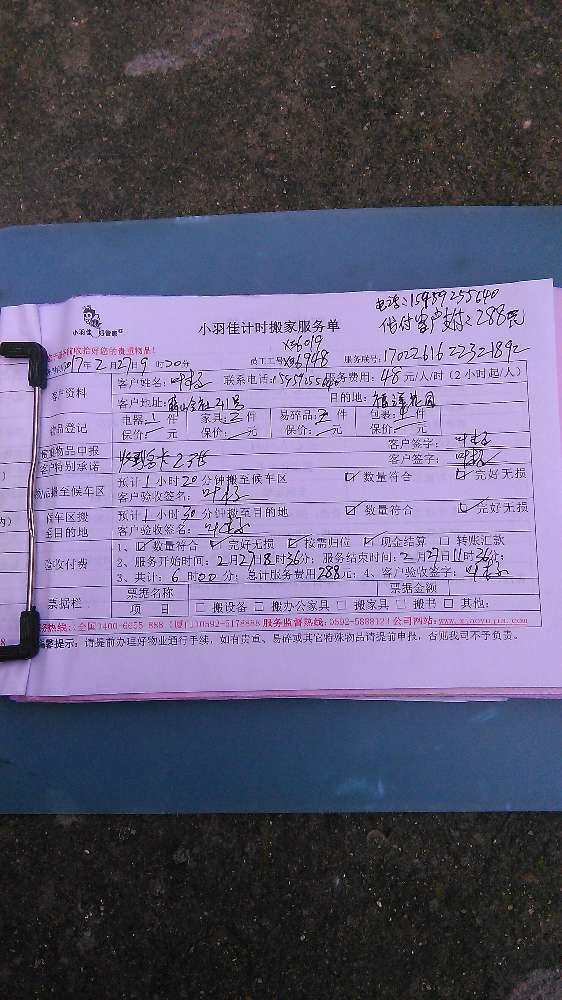 电话:15959255640
代付客户支付:288元
小羽佳 妈管家
小羽佳计时搬家服务单
XZ6019
保管好您的贵重物品!
员工工号XZ6948 服务联号:1702261622321892
2017年2月27日9时30分
客户资料
客户姓名: 联系电话:15959255640 服务费用:48元/人/时(2小时起/人)
客户地址: 211号 目的地: 花园
物品登记
电器: 件 家具: 件 易碎品: 件 包装: 件
保价: 元 保价: 元 保价: 元 保价: 元
物品申报 客户签字:
客户特别承诺 收到 卡2张 客户签字:
物品搬至候车区
预计1小时20分钟搬至候车区 ☑数量符合 ☑完好无损
客户验收签名:
候车区搬至目的地
预计1小时30分钟搬至目的地 ☑数量符合 ☑完好无损
客户验收签名:
验收付费
1、☑数量符合 ☑完好无损 ☑按需归位 ☑现金结算 □转账汇款
2、服务开始时间:2月27日8时36分;服务结束时间:2月27日11时36分;
3、共计:6时00分;总计服务费用288元;4、客户验收签字:
票据栏
票据名称 票据金额
项 目 □搬设备 □搬办公家具 □搬家具 □搬书 □其他:
热线:全国)400-6855 888 (厦门)0592-5178888 服务监督热线:0592-5888123 公司网站:www.xiaoyujia.com
温馨提示:请提前办理好物业通行手续,如有贵重、易碎或其它特殊物品请提前申报,否则我司不予负责。